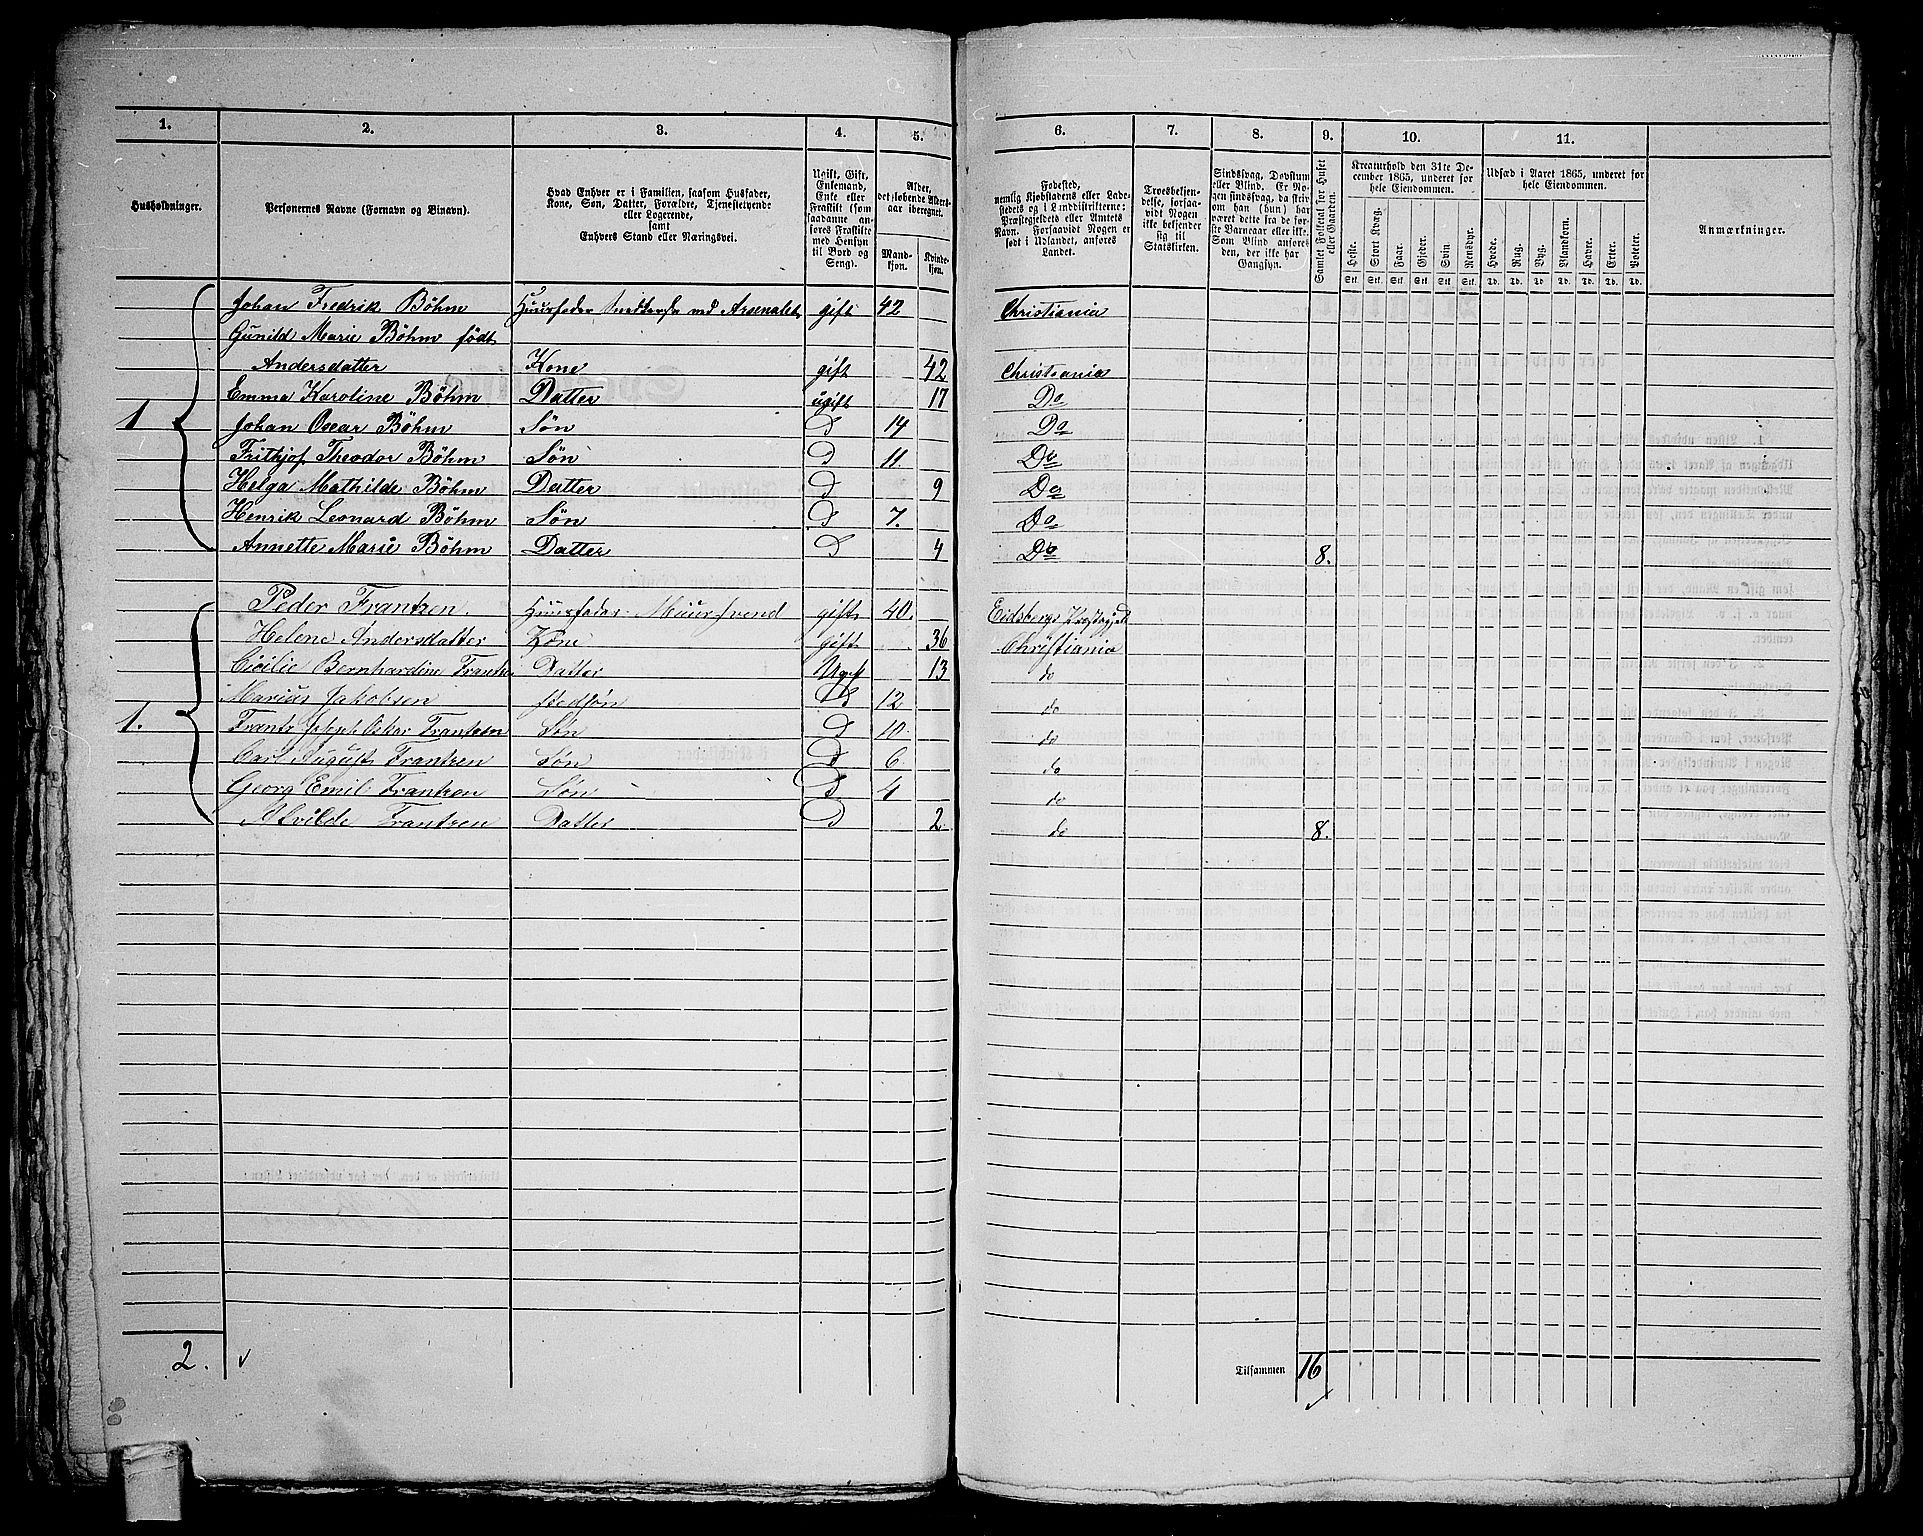 1. 2. 3. 4. 5. 6. 7. 8. 9. 10. 11.
Husholdninger.
Personernes Navne (Fornavn og Binavn).
Hvad Enhver er i Familien, saasom Husfader,
Kone, Søn, Datter, Forældre, Tjenestetyende
eller Logerende,
samt
Enhvers Stand eller Næringsvei.
Ugift, Gift,
Enkemand,
Enke eller
Fraskilt (som
saadanne an-
føres Fraskilte
med Hensyn
til Bord og
Seng).
Alder,
det løbende Alders-
aar iberegnet.
Mand-
kjøn.
Kvinde-
kjøn.
Fødested,
nemlig Kjøbstadens eller Lade-
stedets og i Landdistrifterne:
Præstegjeldets eller Amtets
Navn. Forsaavidt Nogen er
født i Udlandet, anføres
Landet.
Troesbekjen-
delse, forsaa-
vidt Nogen
ikke bekjender
sig til
Statskirken.
Sindssvag, Døvstum
eller Blind. Er No-
gen sindssvag, da skriv
om han (hun) har
været dette fra de før-
ste Barneaar eller ikke.
Som Blind anføres
den, der ikke har
Gangsyn.
Samlet Folketal for Huset
eller Gaarden.
Kreaturhold den 31te De-
cember 1865, underet for
hele Eiendommen.
Heste. Stort Kvæg. Faar. Gjeder. Svin Rensdyr.
Stk. Stk. Stk. Stk. Stk. Stk.
Udsæd i Aaret 1865, underet for
hele Eiendommen.
Hvede. Rug. Byg. Blandkorn. Havre. Erter. Poteter.
Td. Td. Td. Td. Td. Td. Td.
Anmærkninger.
Johan Fredrik Böhm Huusfader ved Arsenalet gift 42 Christiania
Gunild Marie Böhm födt
Andersdatter Kone gift 42 Christiania
Emma Karoline Böhm Datter ugift 17 Do
1 Johan Oscar Böhm Sön D 14 Do
Frithjof Theodor Böhm Sön D 11. Do
Helga Mathilde Böhm Datter D 9 Do
Henrik Leonard Böhm Sön D 7. Do
Annette Marie Böhm Datter D 4 Do 8.
Peder Frantzen. Huusfader Muursvend gift 40. Eidsbergs
Helene Andersdatter Kone gift 36 Christiania
Cecilie Bernhardine Datter Ugift 13 do
Marius Jakobsen stedsön D 12 do
1. Frantz Oskar Frantzen Sön D 10. do
Carl August Frantzen Sön D 6. do
Georg Emil Frantzen Sön D 4 do
Alvilde Frantzen Datter D 2. do 8.
2.
Tilsammen 16